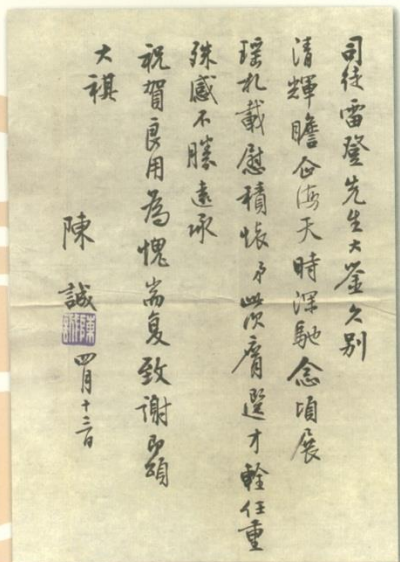 司徒雷登先生大鉴久别
清輝瞻企海天時深馳念頃展
瑶札載慰積悵予此次膺選才輇任重
殊感不勝遠承
祝賀良用為愧耑复致謝即頌
大祺
陳誠
四月十三日